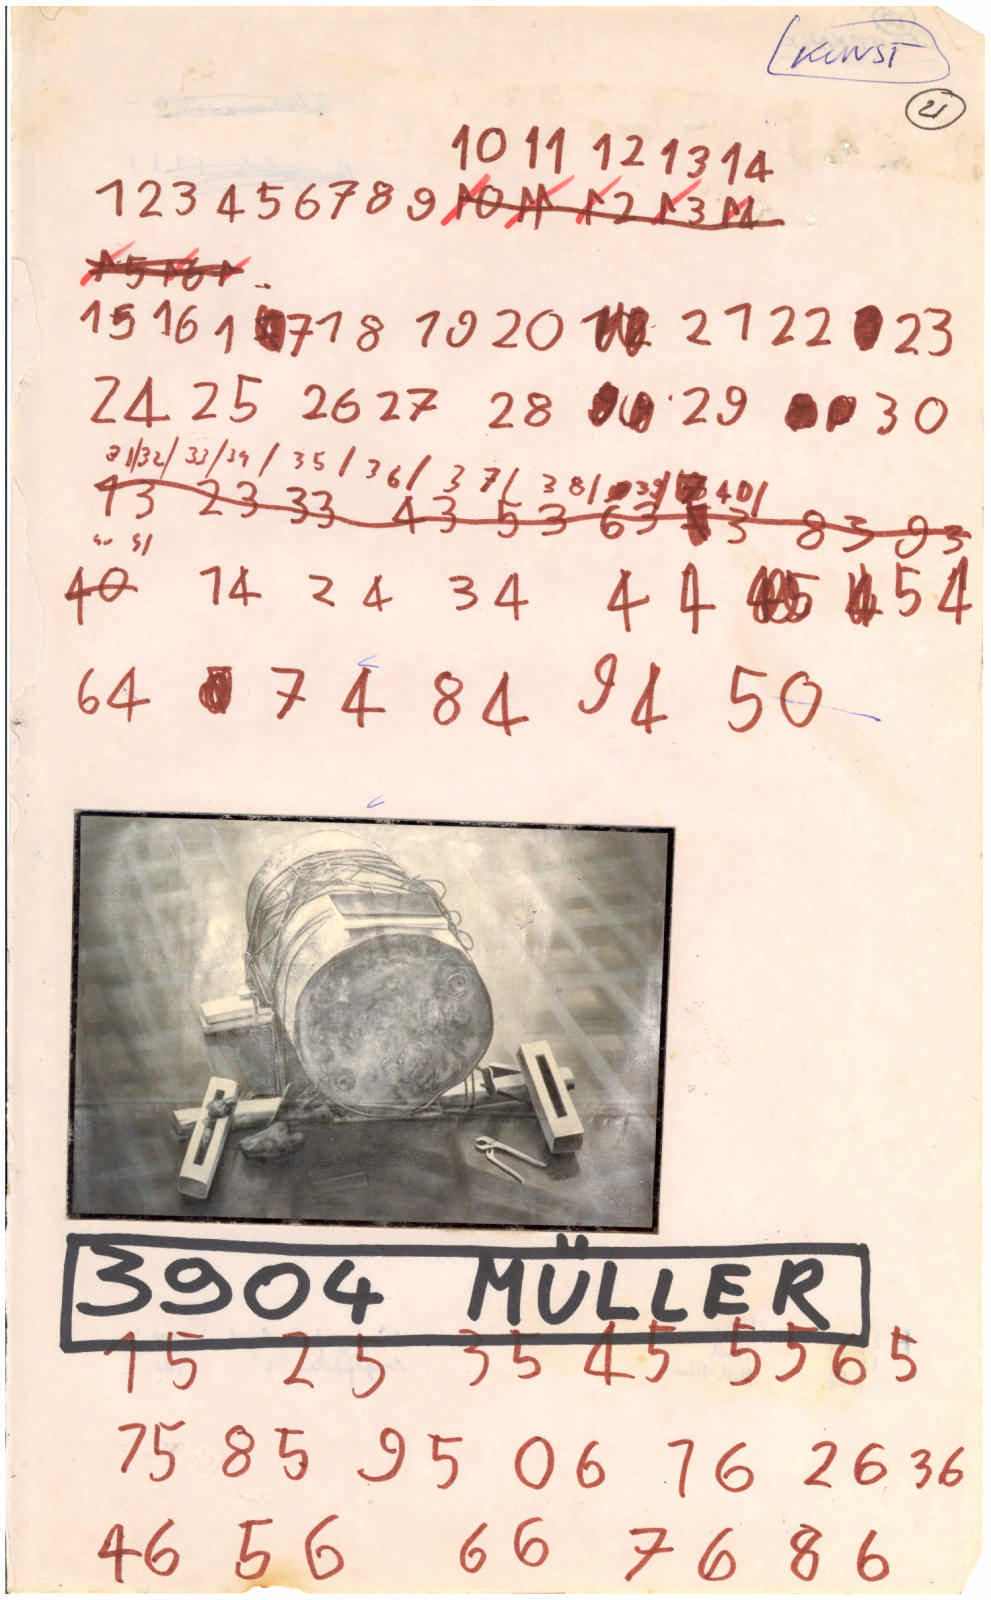 KUNST
21
10 11 12 13 14
1 2 3 4 5 6 7 8 9 10 11 12 13 14
15 16 1
15 16 1 7 18 19 20 21 22 23
24 25 26 27 28 29 30
31/32/ 33/34/ 35/ 36/ 37/ 38/ 39/ 40/
13 23 33 43 53 63 3 83 93
40 14 24 34 44 5 54
64 74 84 94 50
3904 MÜLLER
15 25 35 45 55 65
75 85 95 06 76 26 36
46 56 66 76 86